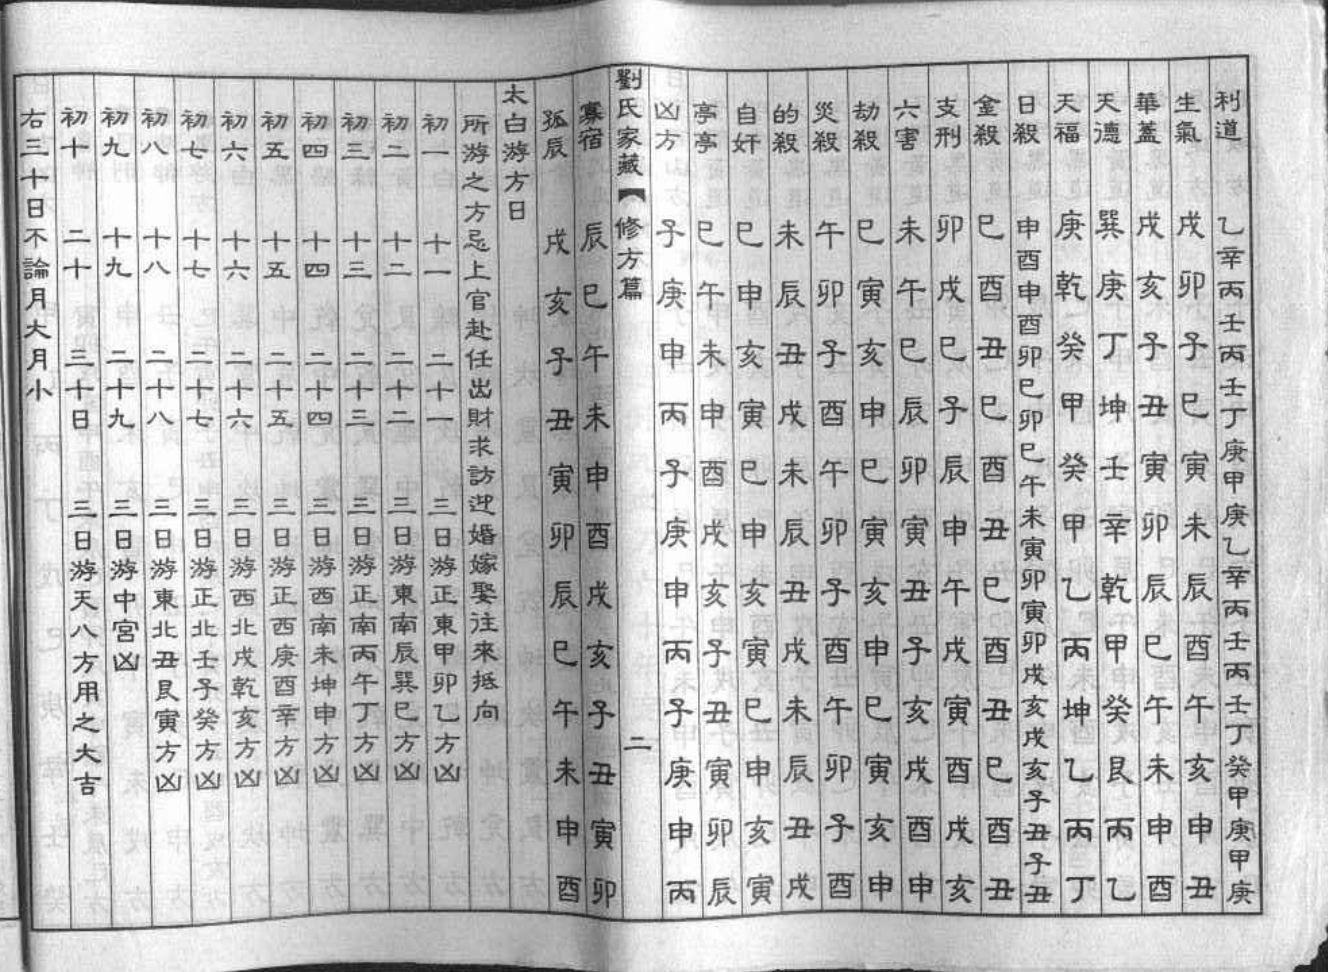 利道 乙辛丙壬丙壬丁庚甲庚乙辛丙壬丙壬丁癸甲庚甲庚
生氣 戌卯子巳寅未辰酉午亥申丑
華蓋 戌亥子丑寅卯辰巳午未申酉
天德 巽庚丁坤壬辛乾甲癸艮丙乙
天福 庚乾癸甲癸甲乙丙坤乙丙丁
日殺 申酉申酉卯巳卯巳午未寅卯寅卯戌亥戌亥子丑子丑
金殺 巳酉丑巳酉丑巳酉丑巳酉丑
支刑 卯戌巳子辰申午戌寅酉戌亥
六害 未午巳辰卯寅丑子亥戌酉申
劫殺 巳寅亥申巳寅亥申巳寅亥申
災殺 午卯子酉午卯子酉午卯子酉
的殺 未辰丑戌未辰丑戌未辰丑戌
自奸 巳申亥寅巳申亥寅巳申亥寅
亭亭 巳午未申酉戌亥子丑寅卯辰
凶方 子庚申丙子庚申丙子庚申丙
劉氏家藏 修方篇 二
寡宿 辰巳午未申酉戌亥子丑寅卯
孤辰 戌亥子丑寅卯辰巳午未申酉
太白游方日
所游之方忌上官赴任出財求訪迎婚嫁娶往來抵向
初一 十一 二十一 三日游正東甲卯乙方凶
初二 十二 二十二 三日游東南辰巽巳方凶
初三 十三 二十三 三日游正南丙午丁方凶
初四 十四 二十四 三日游西南未坤申方凶
初五 十五 二十五 三日游正西庚酉辛方凶
初六 十六 二十六 三日游西北戌乾亥方凶
初七 十七 二十七 三日游正北壬子癸方凶
初八 十八 二十八 三日游東北丑艮寅方凶
初九 十九 二十九 三日游中宮凶
初十 二十 三十日 三日游天八方用之大吉
右三十日不論月大月小